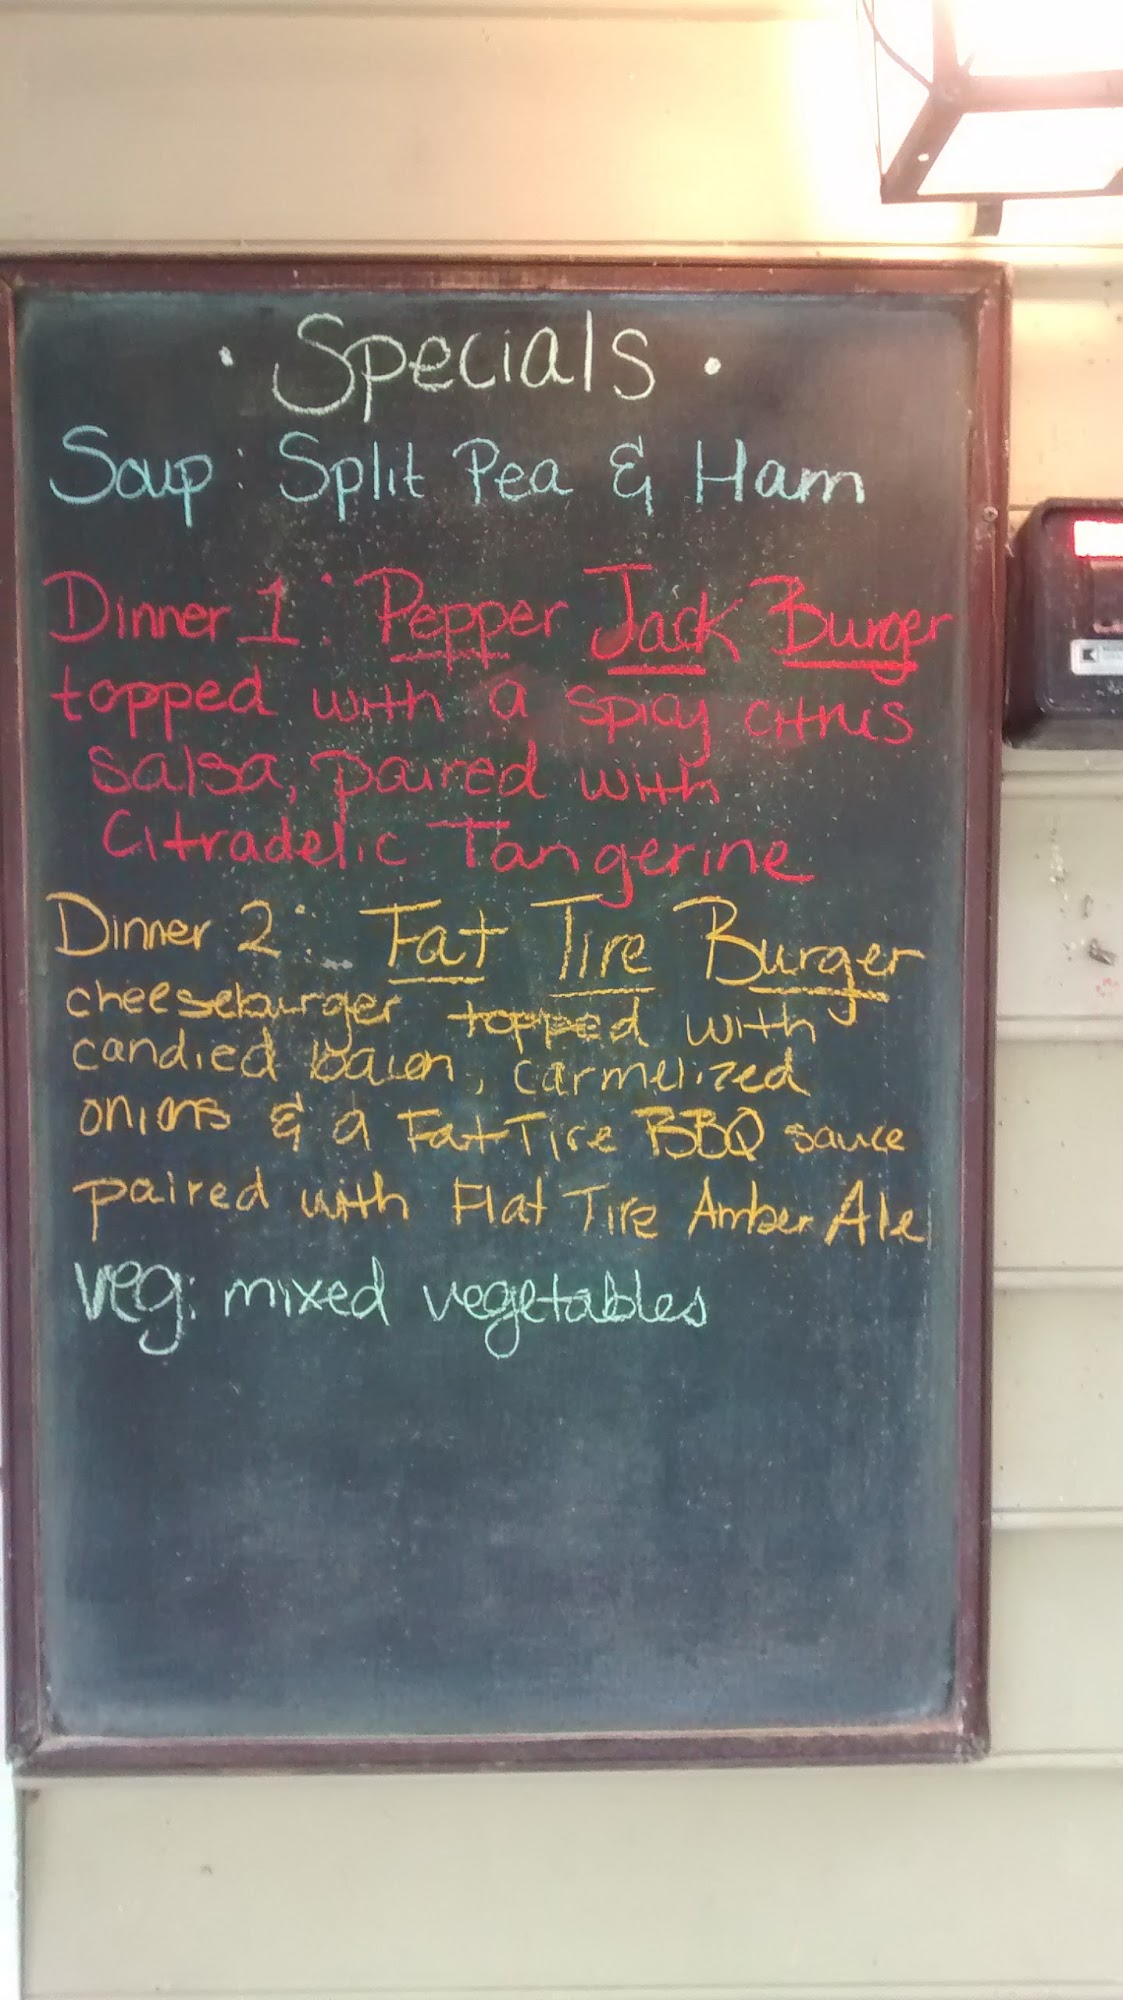 · Specials ·
Soup: Split Pea & Ham
Dinner 1: Pepper Jack Burger
topped with a spicy citrus
salsa, paired with
Citradelic Tangerine
Dinner 2: Fat Tire Burger
cheeseburger topped with
candied bacon, carmelized
onions & a Fat Tire BBQ sauce
paired with Flat Tire Amber Ale
veg: mixed vegetables